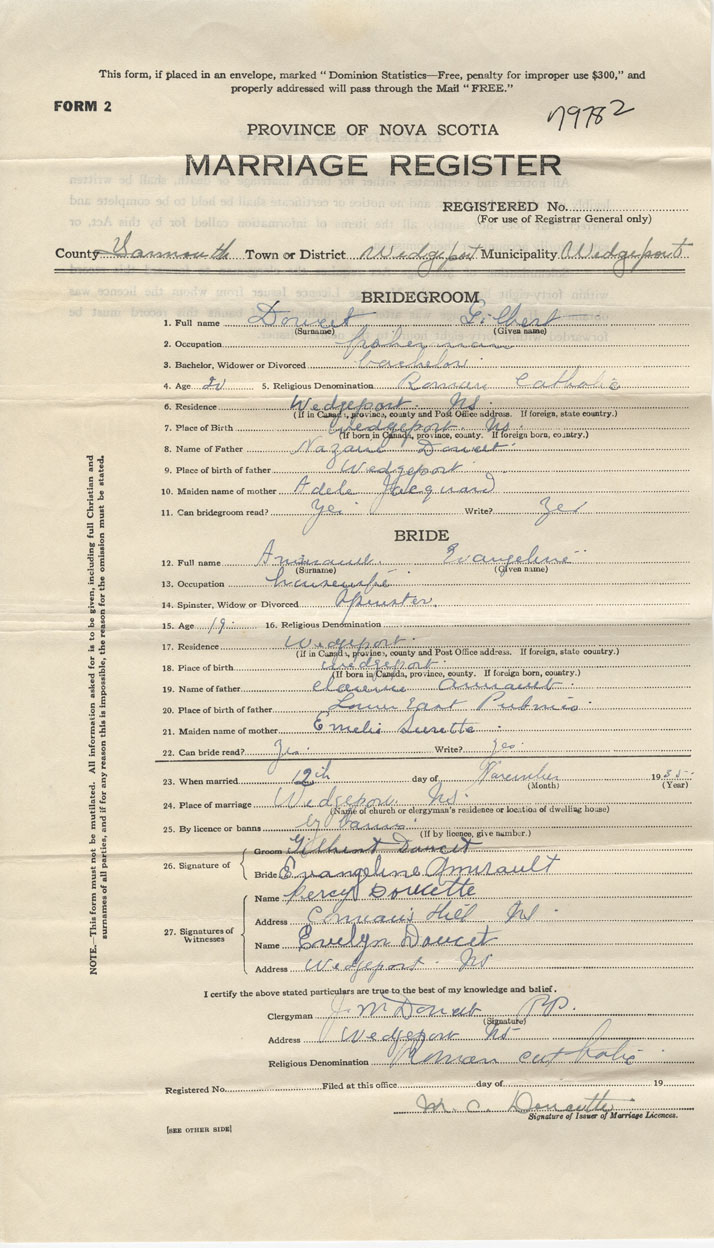 This form, if placed in an envelope, marked "Dominion Statistics—Free, penalty for improper use $300," and
properly addressed will pass through the Mail "FREE."
FORM 2
79782
PROVINCE OF NOVA SCOTIA
MARRIAGE REGISTER
REGISTERED No.
(For use of Registrar General only)
County Yarmouth Town or District Wedgeport Municipality Wedgeport
BRIDEGROOM
1. Full name Doucet Gilbert
(Surname) (Given name)
2. Occupation fisherman
3. Bachelor, Widower or Divorced bachelor
4. Age 20 5. Religious Denomination Roman Catholic
6. Residence Wedgeport. NS.
(If in Canada, province, county and Post Office address. If foreign, state country.)
7. Place of Birth Wedgeport. Ns.
(If born in Canada, province, county. If foreign born, country.)
8. Name of Father Doucet
9. Place of birth of father Wedgeport
10. Maiden name of mother Adele Jacquard
11. Can bridegroom read? Yes Write? Yes
BRIDE
12. Full name Evangeline
(Surname) (Given name)
13. Occupation housewife
14. Spinster, Widow or Divorced Spinster
15. Age 19 16. Religious Denomination
17. Residence Wedgeport
(If in Canada, province, county and Post Office address. If foreign, state country.)
18. Place of birth Wedgeport
(If born in Canada, province, county. If foreign born, country.)
19. Name of father Clarence
20. Place of birth of father Lower East Pubnico
21. Maiden name of mother Emelie Surette
22. Can bride read? Yes Write? Yes
23. When married 12th day of November 1935
(Month) (Year)
24. Place of marriage Wedgeport NS.
(Name of church or clergyman's residence or location of dwelling house)
25. By licence or banns by banns
(If by licence, give number.)
26. Signature of
Groom Gilbert Doucet
Bride Evangeline Amirault
27. Signatures of Witnesses
Name Percy Doucette
Address Comeau's Hill NS
Name Evelyn Doucet
Address Wedgeport NS
I certify the above stated particulars are true to the best of my knowledge and belief.
Clergyman J. M. Doucet P.P.
(Signature)
Address Wedgeport NS
Religious Denomination Roman Catholic
Registered No. Filed at this office day of 19
M. C. Doucette
Signature of Issuer of Marriage Licences.
[SEE OTHER SIDE]
NOTE.—This form must not be mutilated. All information asked for is to be given, including full Christian and
surnames of all parties, and if for any reason this is impossible, the reason for the omission must be stated.